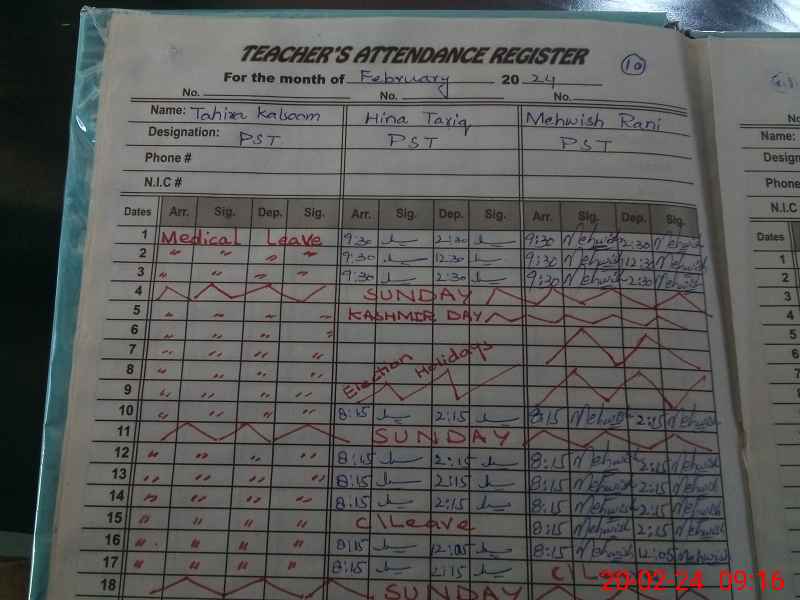 TEACHER'S ATTENDANCE REGISTER 10
For the month of February 20 24
No. No. No.
Name: Tahira Kalsoom Hina Tariq Mehwish Rani
Designation: PST PST PST
Phone #
N.I.C #
Dates Arr. Sig. Dep. Sig. Arr. Sig. Dep. Sig. Arr. Sig. Dep. Sig.
1 Medical Leave 9:30 2:30 9:30 Mehwish 2:30 Mehwish
2 " " " " 9:30 12:30 9:30 Mehwish 12:30 Mehwish
3 " " " " 9:30 2:30 9:30 Mehwish 2:30 Mehwish
4 SUNDAY
5 " " " " KASHMIR DAY
6 " " " "
7 " " " "
8 " " " " Election Holidays
9 " " " "
10 " " " " 8:15 2:15 8:15 Mehwish 2:15 Mehwish
11 SUNDAY
12 " " " " 8:15 2:15 8:15 Mehwish 2:15 Mehwish
13 " " " " 8:15 2:15 8:15 Mehwish 2:15 Mehwish
14 " " " " 8:15 2:15 8:15 Mehwish 2:15 Mehwish
15 " " " " C\Leave 8:15 Mehwish 2:15 Mehwish
16 " " " " 8:15 12:05 8:15 Mehwish 12:05 Mehwish
17 " " " " 8:15 2:15 C\
18 SUNDAY
No
Name:
Design
Phone
N.I.C
Dates
1
2
3
4
5
6
7
8
20-02-24 09:16